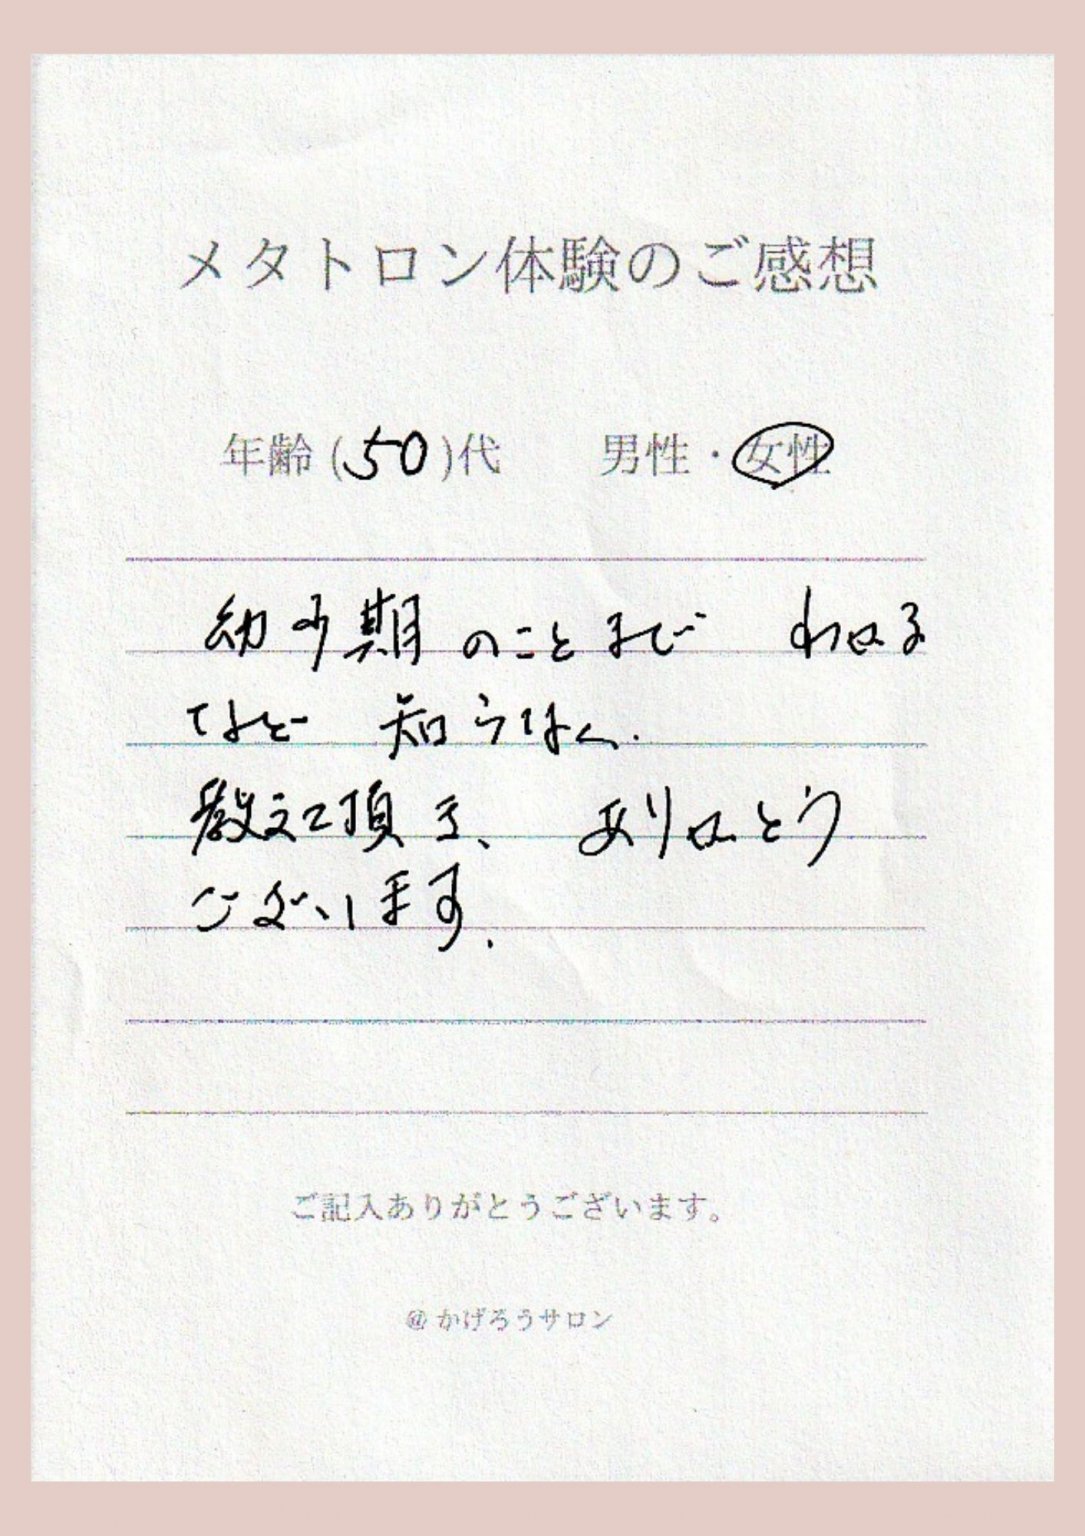 メタトロン体験のご感想
年齢(50)代　男性・女性
幼少期のことまで　わかる
など　知らなく.
教えて頂き、ありがとう
ございます.
ご記入ありがとうございます。
@かげろうサロン